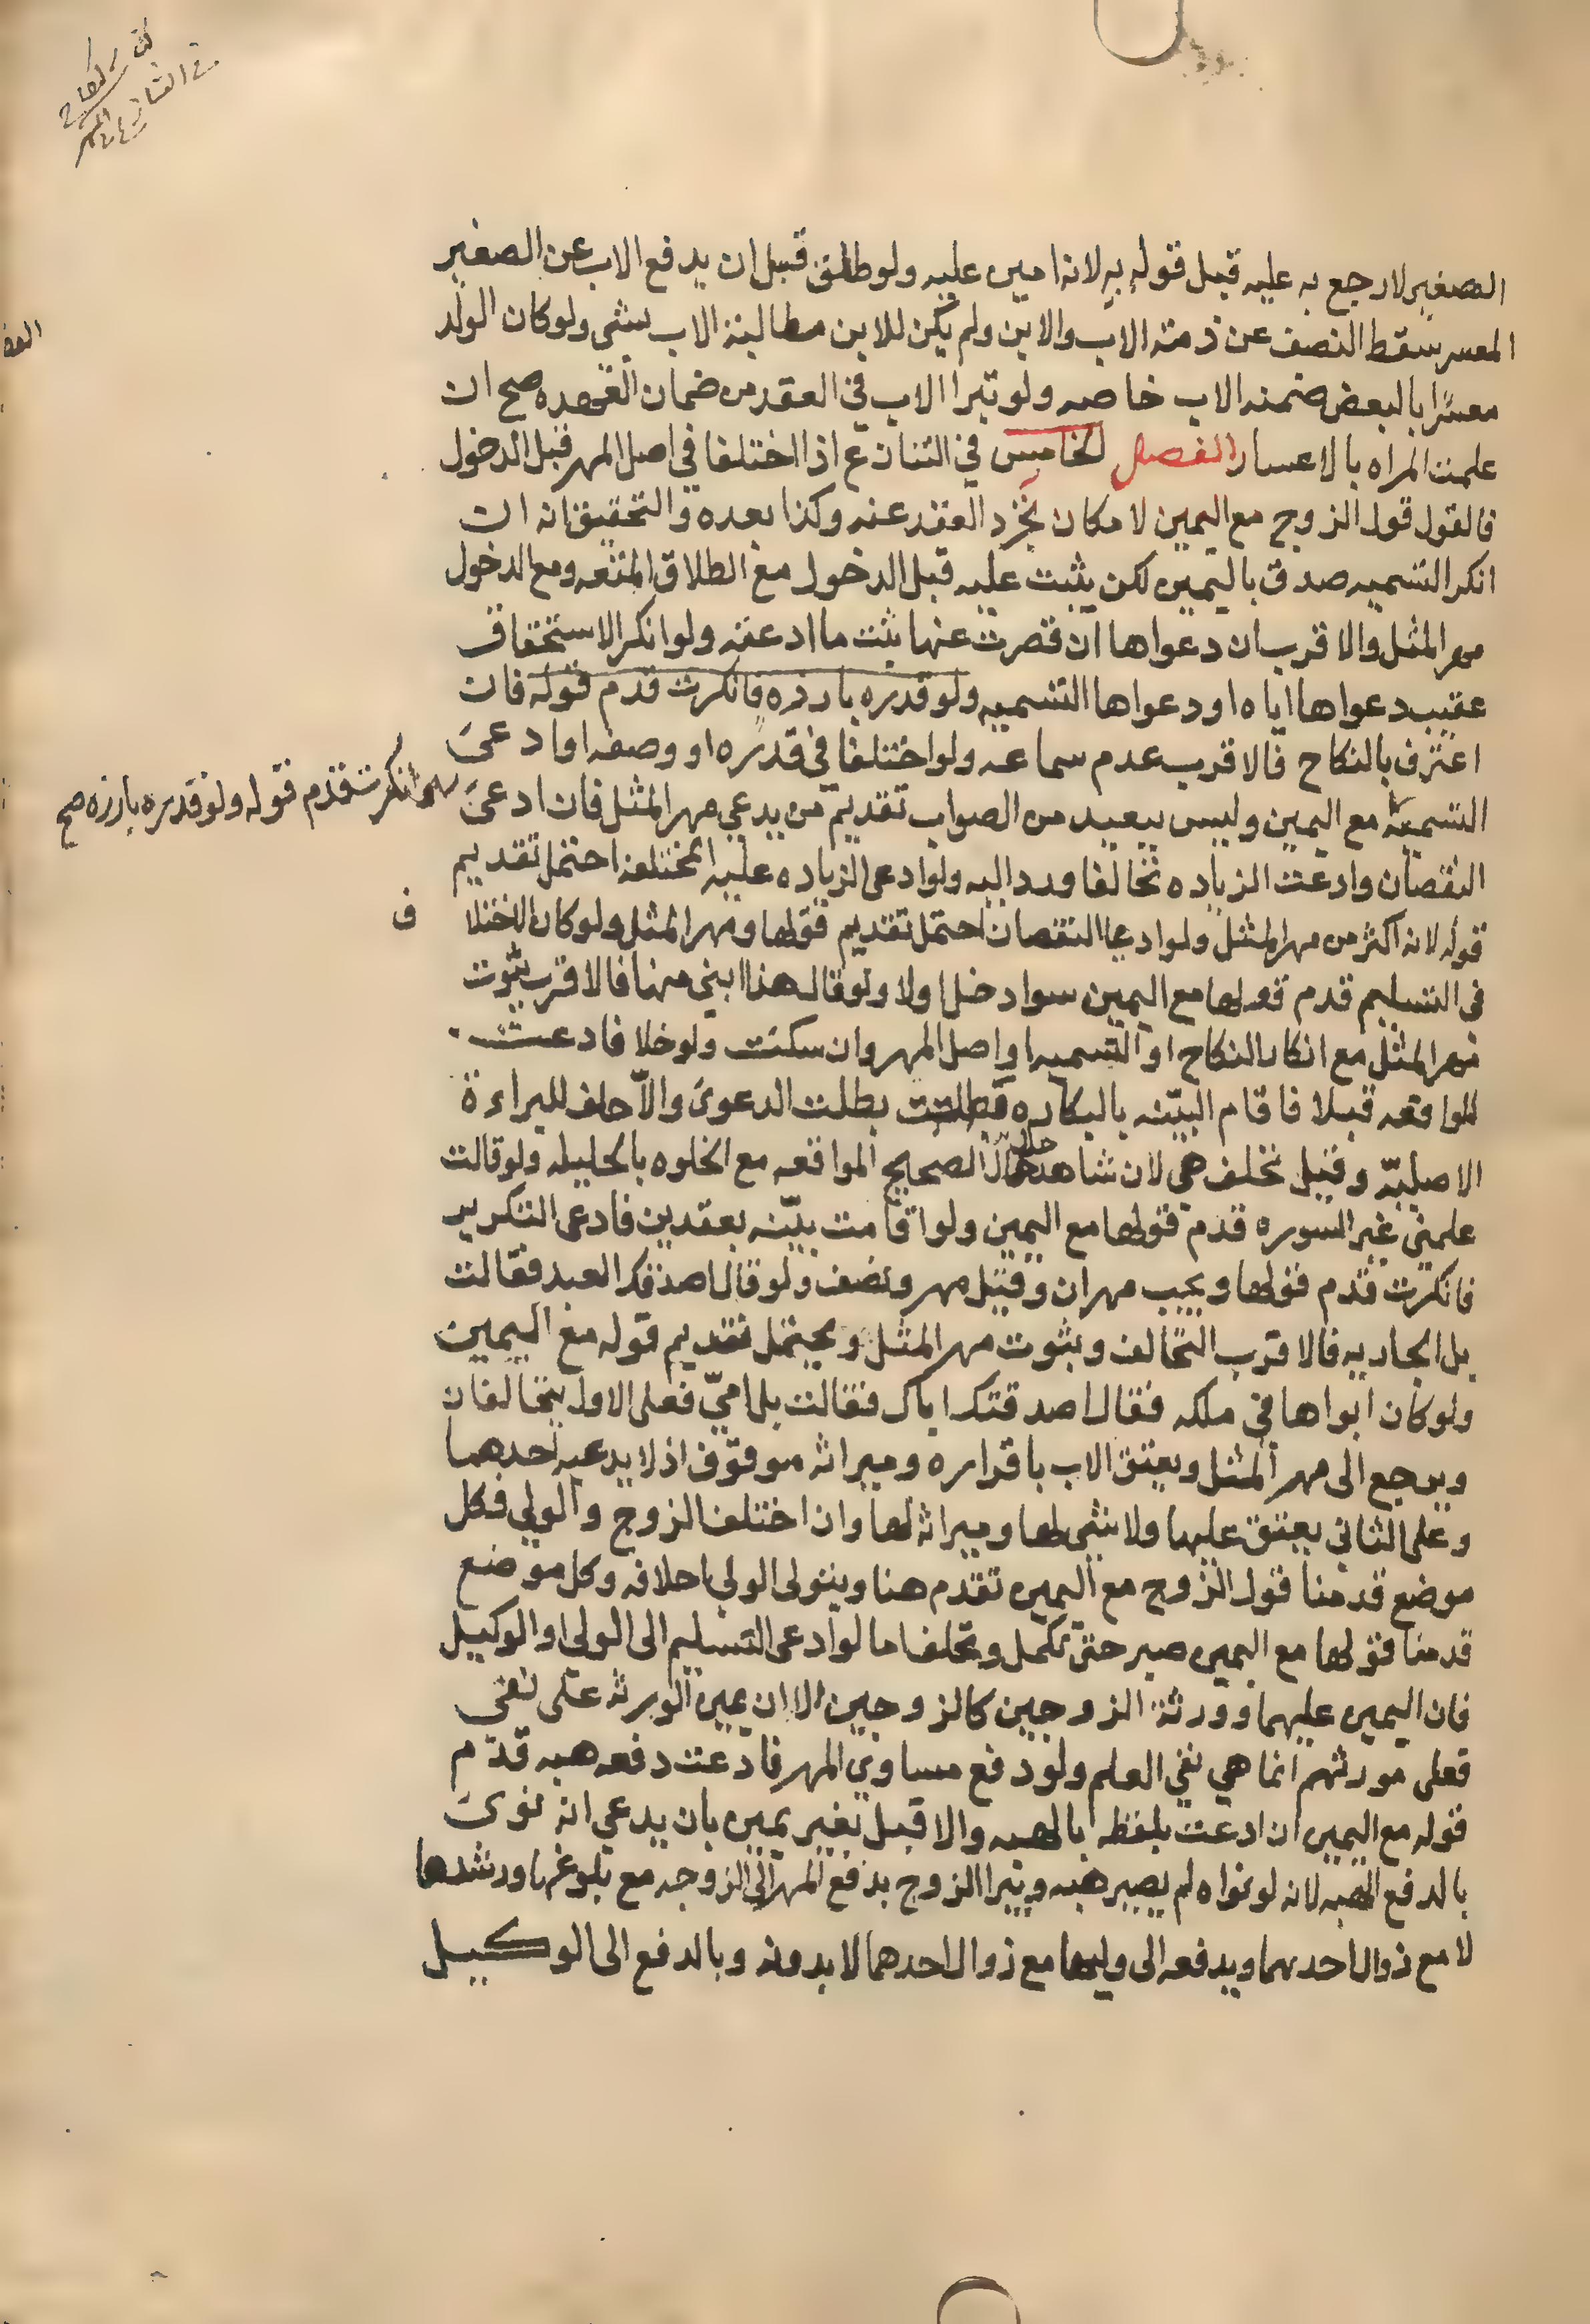 كتاب النكاح
في التنازع في المهر
الصغير لارجع به عليه قبل قوله به لانه امين عليه ولو طلق قبل ان يدفع الاب عن الصغير
المعسر سقط النصف عن ذمته الاب والابن ولم يكن للابن مطالبة الاب بشي ولو كان الولد
معسرا بالبعض ضمنه الاب خاصه ولو تبرا الاب في العقد من ضمان العهده صح ان
علمت المراه بالاعسار الفصل الخامس في التنازع اذا اختلفا في اصل المهر قبل الدخول
فالقول قول الزوج مع اليمين لامكان تجرد العقد عنه وكذا بعده والتحقيق انه ان
انكر التسميه صدق باليمين لكن يثبت عليه قبل الدخول مع الطلاق المتعه ومع الدخول
مهر المثل والاقرب ان دعواها ان قصرت عنها يثبت ما ادعته ولو انكر الاستحقاق
عقيب دعواها اياه او دعواها التسميه ولو قدره بارزه فانكرت قدم قوله فان
اعترف بالنكاح فالاقرب عدم سماعه ولو اختلفا في قدره او وصفه او ادعى
التسمية مع اليمين وليس ببعيد من الصواب تقديم من يدعي مهر المثل فان ادعى
فانكرت قدم قوله ولو قدره بارزه صح
النقصان وادعت الزياده تحالفا وردا اليه ولو ادعى الزياده عليه المختلفة احتمل تقديم
قوله لانه اكثر من مهر المثل ولو ادعيا النقصان احتمل تقديم قولها ومهر المثل ولو كان الاختلا ف
في التسليم قدم قولها مع اليمين سوا دخل اولا ولو قال هذا ابني منها فالاقرب ثبوت
مهر المثل مع انكار النكاح او التسميه او اصل المهر وان سكتت ولو خلا فادعت
المواقعه قبلا فاقام البيّنه بالبكاره بطلت الدعوى والاّ حلف للبراءة
الاصليّه وقيل تحلف هي لان شاهد حال الصحيح المواقعه مع الخلوه بالحليله ولو قالت
علمني غير السوره قدم قولها مع اليمين ولو اقامت بيّنه بعقدين فادعى التكرير
فانكرت قدم قولها ويجب مهران وقيل مهر ونصف ولو قال اصدقتك العبد فقالت
بل الجاريه فالاقرب التحالف وثبوت مهر المثل ويحتمل تقديم قوله مع اليمين
ولو كان ابواها في ملكه فقال اصدقتك اباك فقالت بل امّي فعلى الاول يتحالفان
ويرجع الى مهر المثل ويعتق الاب باقراره وميراثه موقوف اذ لا يدعيه احدهما
وعلى الثاني يعتق عليها ولا شي لها وميراثه لها وان اختلف الزوج والولي فكل
موضع قدمنا قول الزوج مع اليمين تقدم هنا ويتولى الولي احلافه وكل موضع
قدمنا قولها مع اليمين صبر حتى تكمل وتحلف اما لو ادعى التسليم الى الولي او الوكيل
فان اليمين عليهما وورثة الزوجين كالزوجين الا ان يمين الورثه على نفي
فعلى مورثهم انما هي نفي العلم ولو دفع مساوي المهر فادعت دفعه هبه قدّم
قوله مع اليمين ان ادعت بلفظه بالهبه والا قبل بغير يمين بان يدعي انه نوى
بالدفع الهبه لانه لو نواه لم يصير هبه ويبرا الزوج بدفع المهر الى الزوجه مع بلوغها ورشدها
لا مع زوال احدهما ويدفعه الى وليها مع زوال احدهما لا بدونه وبالدفع الى الوكيل